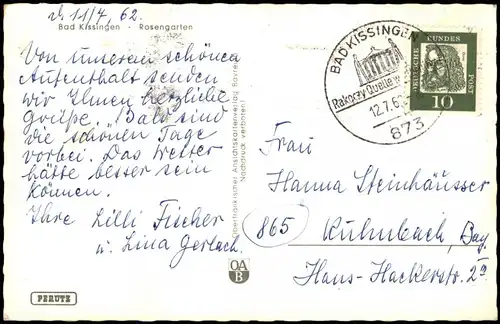 d. 11/7, 62.
Bad Kissingen - Rosengarten
Von unserem schönen
Aufenthalt senden
wir Ihnen herzliche
Grüße. Bald sind
die schönen Tage
vorbei. Das Wetter
hätte besser sein
können.
Ihre Lilli Fischer
u. Lina Gerlach.
OA
B
PERUTZ
Oberfränkischer Ansichtskartenverlag Bayreuth
Nachdruck verboten!
BAD KISSINGEN
Rakoczy-Quelle
12.7.62
873
DEUTSCHE BUNDESPOST
10
Frau
Hanna Steinhäusser
865 Kulmbach, Bay.
Hans-Hackerstr. 2a